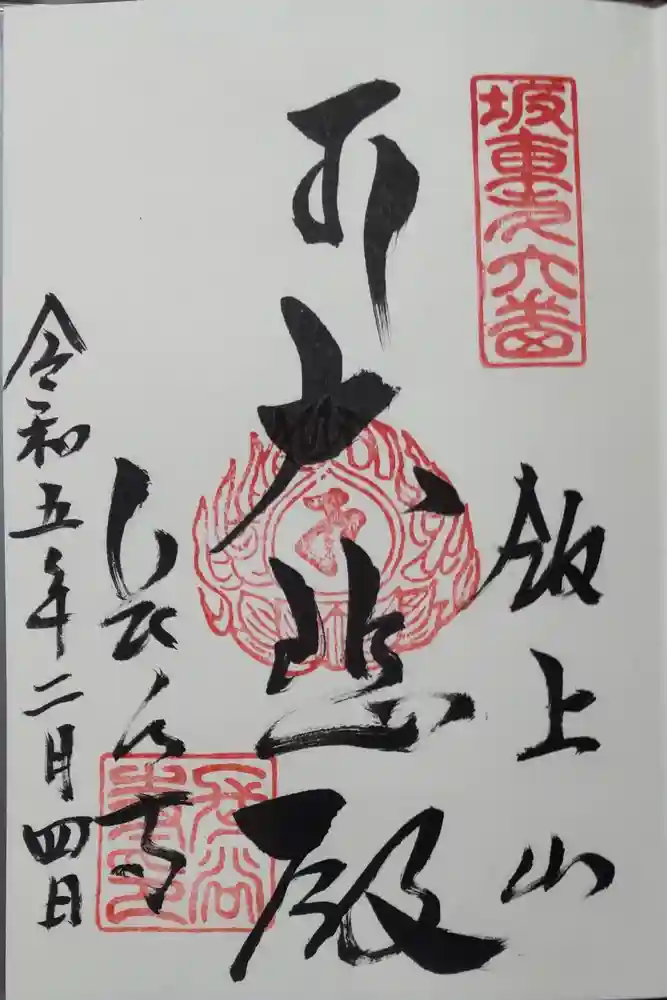 坂東第六番
飯上山
大悲殿
長谷寺
令和五年二月四日